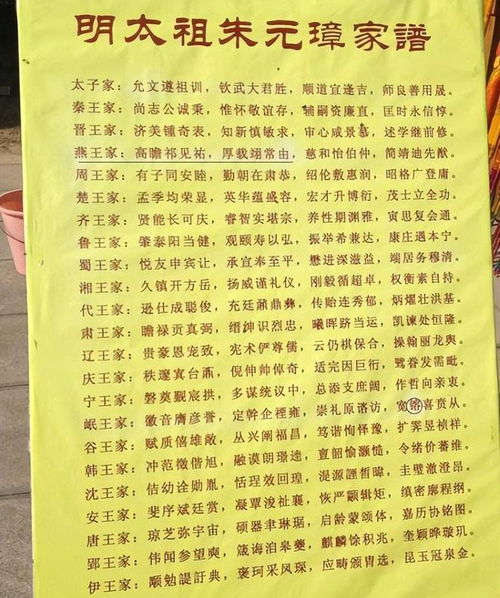 明太祖朱元璋家譜
太子家：允文遵祖训，钦武大君胜，顺道宜逢吉，师良善用晟。
秦王家：尚志公诚秉，惟怀敬谊存，辅嗣资廉直，匡时永信惇。
晋王家：济美锺奇表，知新慎敏求，审心咸景慕，述学继前修。
燕王家：高瞻祁见祐，厚载翊常由，慈和怡伯仲，简靖迪先猷。
周王家：有子同安睦，勤朝在肃恭，绍伦敷惠润，昭格广登庸。
楚王家：孟季均荣显，英华蕴盛容，宏才升博衍，茂士立全功。
齐王家：贤能长可庆，睿智实堪宗，养性期渊雅，寅思复会通。
鲁王家：肇泰阳当健，观颐寿以弘，振举希兼达，康庄遇本宁。
蜀王家：悦友申宾让，承宣奉至平，懋进深滋益，端居务穆清。
湘王家：久镇开方岳，扬威谨礼仪，刚毅循超卓，权衡素自持。
代王家：逊仕成聪俊，充廷鼐鼎彝，传贻连秀郁，炳燿壮洪基。
肃王家：瞻禄贡真弼，缙绅识烈忠，曦晖跻当运，凯谏处恒隆。
辽王家：贵豪恩宠致，宪术俨尊儒，云仍祺保合，操翰丽龙舆。
庆王家：秩邃寘台鼒，倪伸帅倬奇，适完因巨衍，骘眷发需毗。
宁王家：磐奠觐宸拱，多谋统议中，总添支庶阔，作哲向亲衷。
岷王家：徽音膺彦誉，定幹企禋雍，崇礼原谘访，宽镕喜贲从。
谷王家：赋质僖雄敞，丛兴阐福昌，笃谐恂怿豫，扩霁昱祯祥。
韩王家：冲范徵偕旭，融谟朗璟逵，亶韶愉灏慥，令绪价蕃维。
沈王家：佶幼诠勋胤，恬珵效回瑝，湜源諲晢暐，圭璧澈澄昂。
安王家：斐序斌廷赏，凝覃浚祉襄，恢严颛辑矩，缜密廓程纲。
唐王家：琼芝弥宇宙，硕器聿琳琚，启龄蒙颂体，嘉历协铭图。
郢王家：伟闻参望奭，箴诲洎皋夔，麒麟馀积兆，奎颖晔璇玑。
伊王家：颙勉諟訏典，褒珂采凤琛，应畴颁胄选，昆玉冠泉金。